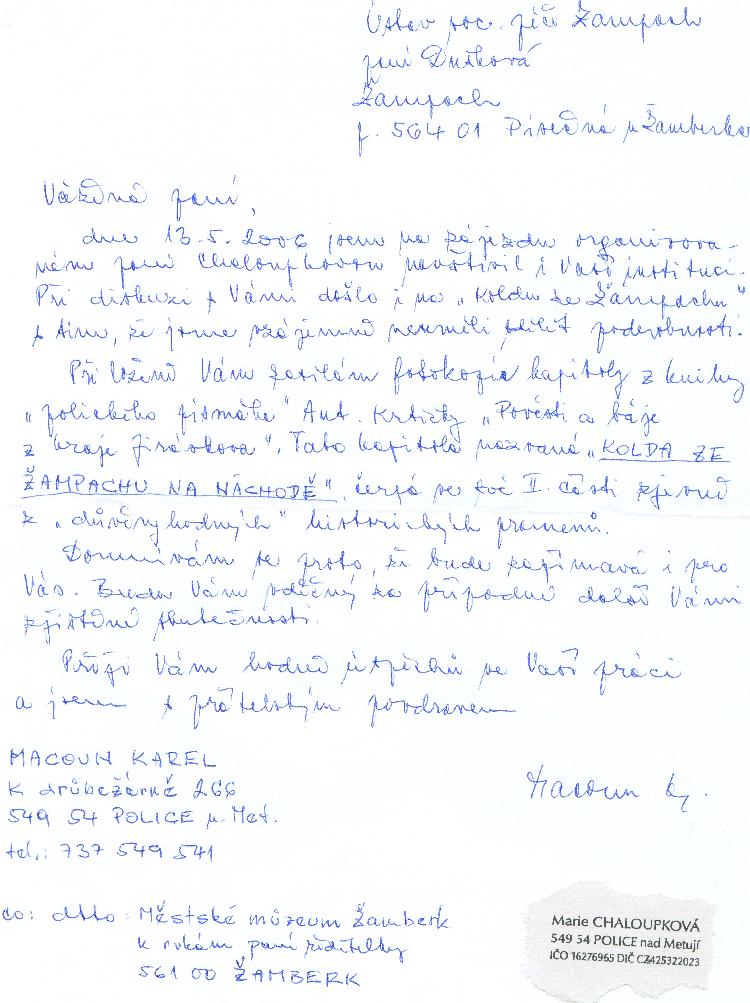 Ústav soc. péče Žampach
paní Dušková
Žampach
p. 564 01 Písečná u Žamberka
Vážená paní,
dne 13.5.2006 jsem na zájezdu organizova-
ném paní Chaloupkovou navštívil i Vaši instituci.
Při diskuzi s Vámi došlo i na „Koldu ze Žampachu"
s tím, že jsme vzájemně neznali příliš podrobností.
Přiloženě Vám zasílám fotokopie kapitoly z knihy
„polického písmáka" Ant. Krtičky „Pověsti a báje
z kraje Jiráskova". Tato kapitola nazvaná „KOLDA ZE
ŽAMPACHU NA NÁCHODĚ", čerpá ve své II. části zjevně
z „důvěryhodných" historických pramenů.
Domnívám se proto, že bude zajímavá i pro
Vás. Budu Vám vděčný za případné další Vámi
zjištěné skutečnosti.
Přeji Vám hodně úspěchů ve Vaší práci
a jsem s přátelským pozdravem
MACOUN KAREL
K drůbežárně 266
549 54 POLICE n. Met.
tel.: 737 549 541
Macoun
co: dtto: Městské múzeum Žamberk
k rukám paní ředitelky
561 00 ŽAMBERK
Marie CHALOUPKOVÁ
549 54 POLICE nad Metují
IČO 16276965 DIČ CZ425322023